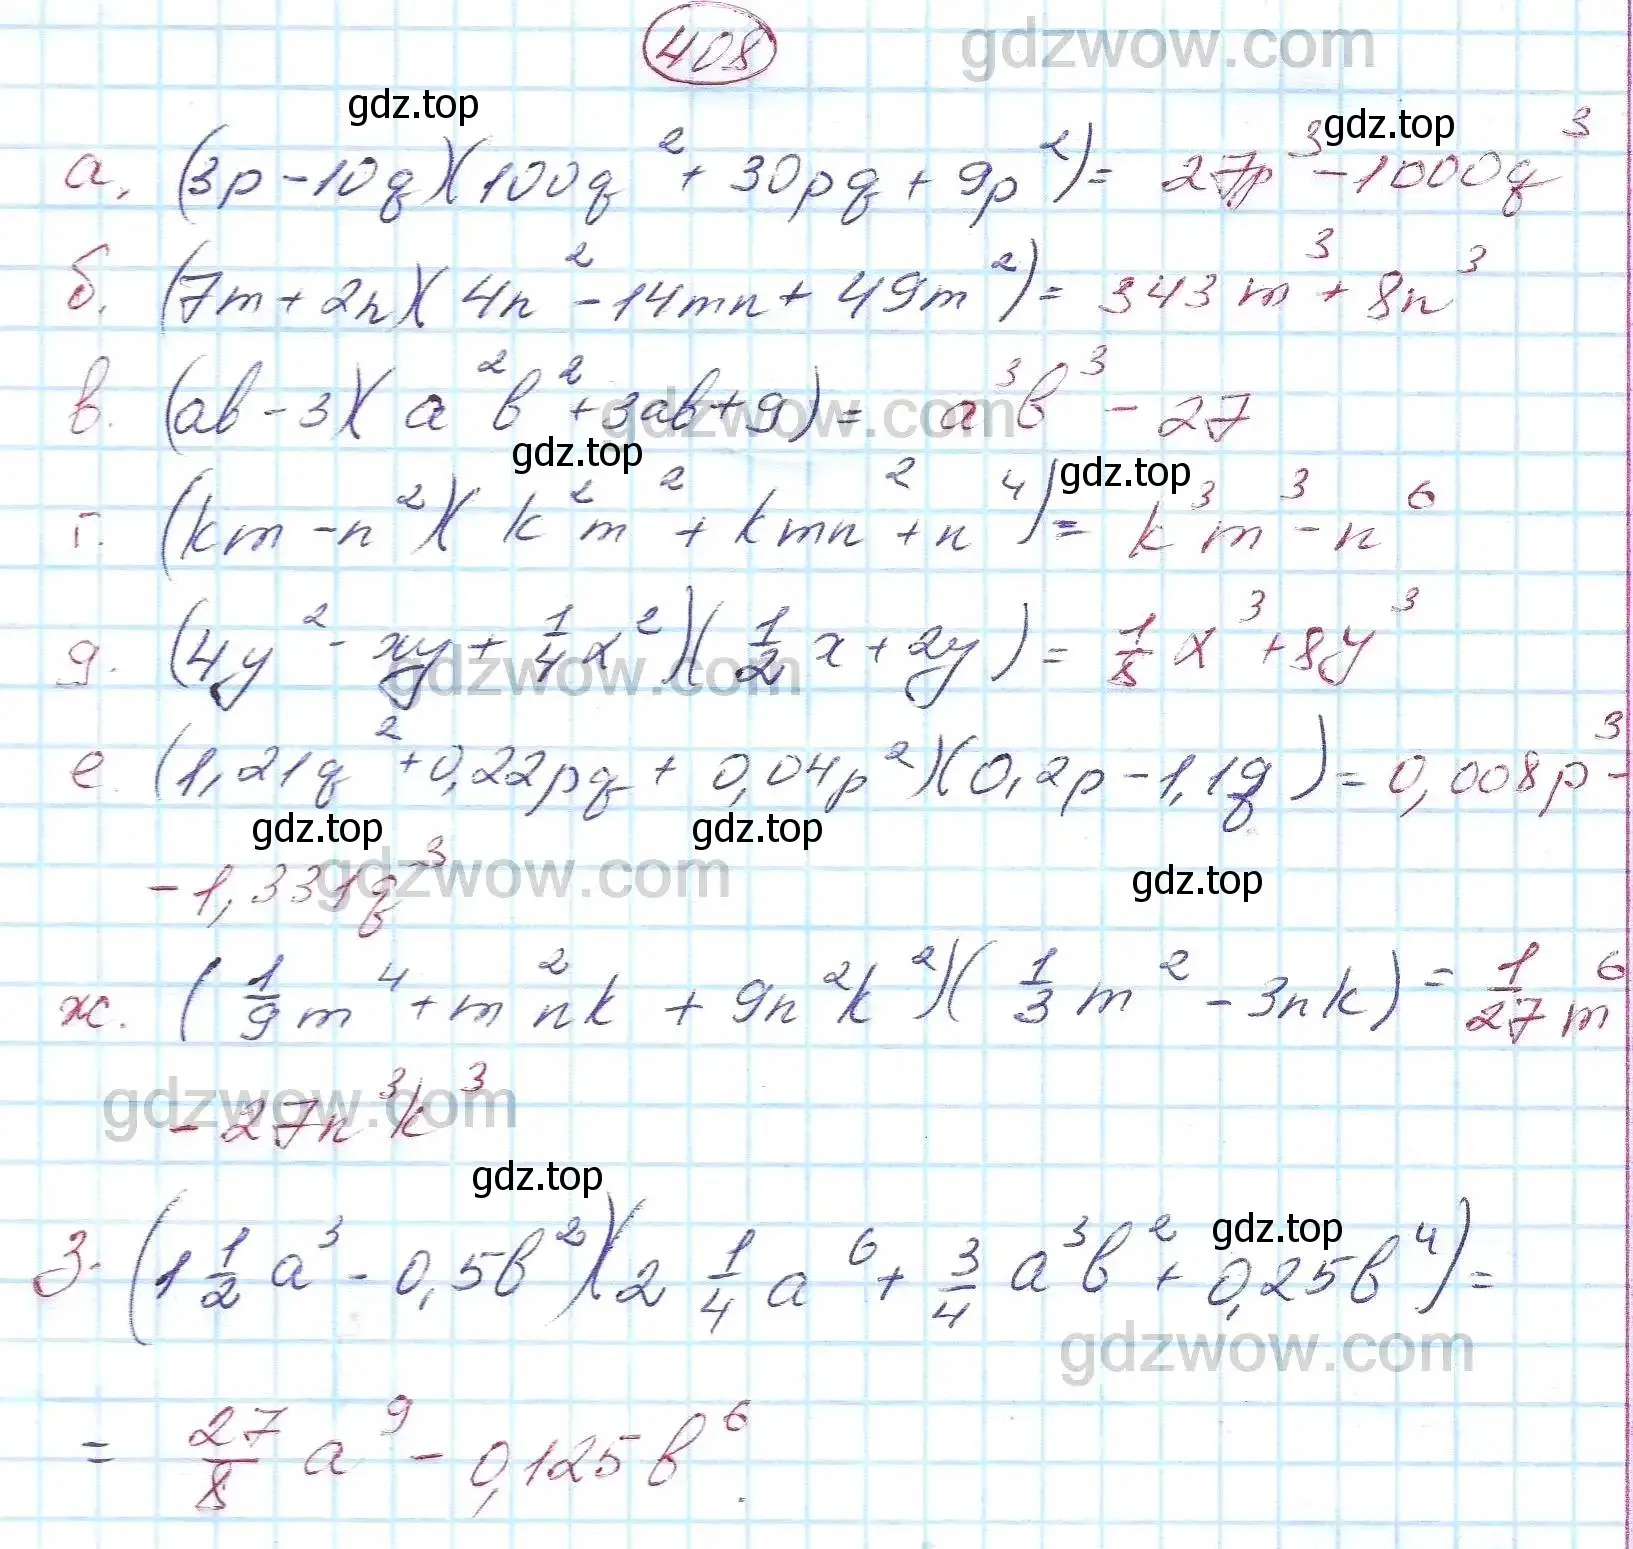 408
gdzwow.com
gdz.top
gdz.top
а. (3p - 10q)(100q² + 30pq + 9p²) = 27p³ - 1000q³
б. (7m + 2n)(4n² - 14mn + 49m²) = 343m³ + 8n³
в. (ab - 3)(a²b² + 3ab + 9) = a³b³ - 27
gdzwow.com
gdz.top
gdz.top
г. (km - n²)(k²m² + kmn² + n⁴) = k³m³ - n⁶
д. (4y² - xy + 1/4 x²)(1/2 x + 2y) = 1/8 x³ + 8y³
gdzwow.com
е. (1,21q² + 0,22pq + 0,04p²)(0,2p - 1,1q) = 0,008p³ -
gdz.top
gdz.top
- 1,331q³
gdzwow.com
gdz.top
ж. (1/9 m⁴ + m²nk + 9n²k²)(1/3 m² - 3nk) = 1/27 m⁶
- 27n³k³
gdzwow.com
gdz.top
gdz.top
з. (1 1/2 a³ - 0,5b²)(2 1/4 a⁶ + 3/4 a³b² + 0,25b⁴) =
gdzwow.com
= 27/8 a⁹ - 0,125b⁶.